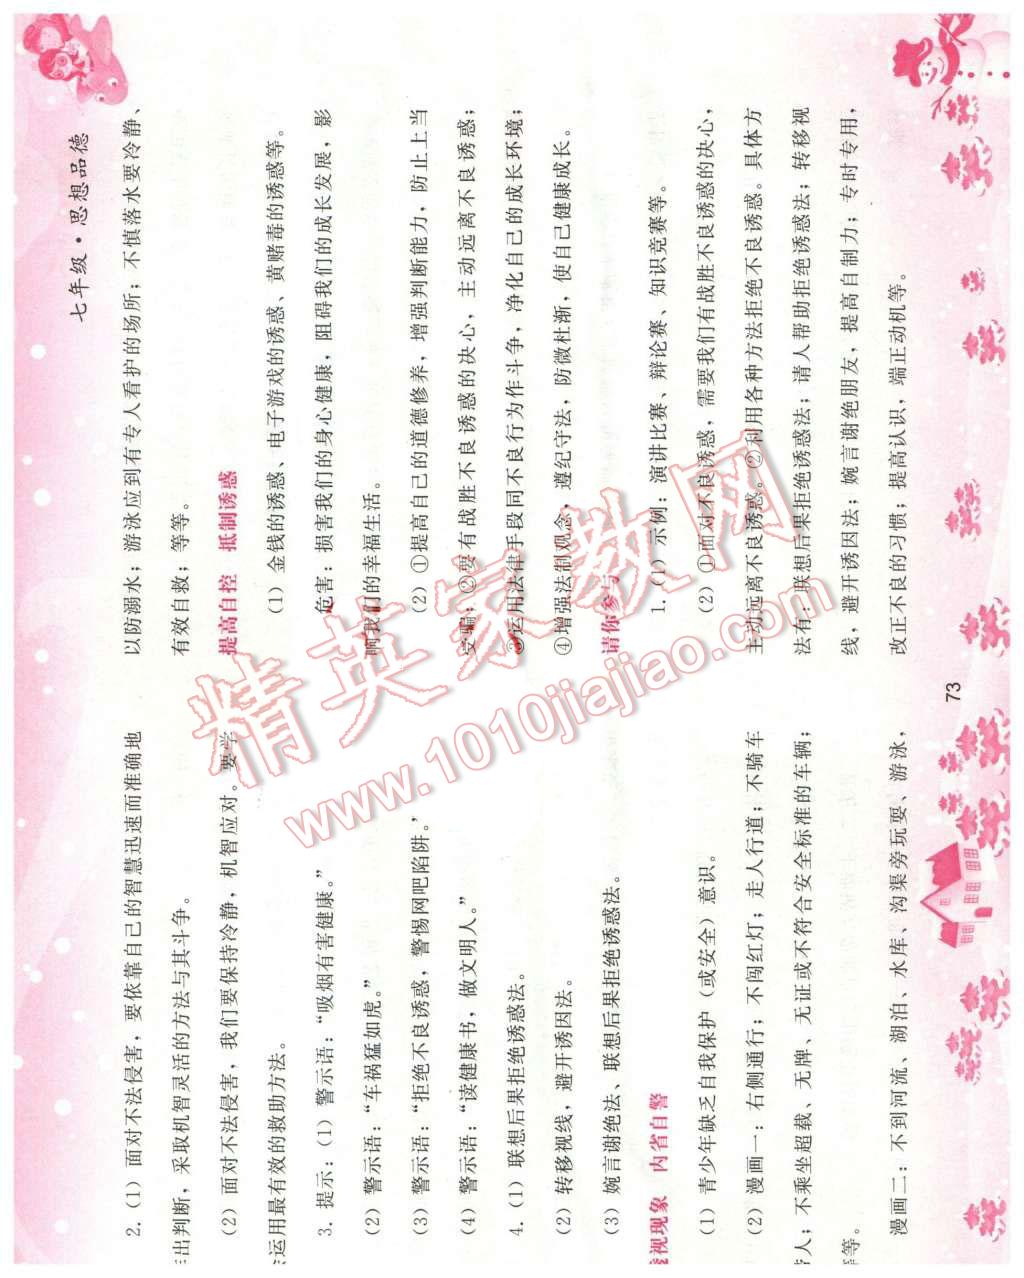 七年级·思想品德
2. (1) 面对不法侵害，要依靠自己的智慧迅速而准确地
出判断，采取机智灵活的方法与其斗争。
(2) 面对不法侵害，我们要保持冷静，机智应对。要学
运用最有效的救助方法。
3. 提示：(1) 警示语：“吸烟有害健康。”
(2) 警示语：“车祸猛如虎。”
(3) 警示语：“拒绝不良诱惑，警惕网吧陷阱。”
(4) 警示语：“读健康书，做文明人。”
4. (1) 联想后果拒绝诱惑法。
(2) 转移视线，避开诱因法。
(3) 婉言谢绝法、联想后果拒绝诱惑法。
视现象 内省自警
(1) 青少年缺乏自我保护（或安全）意识。
(2) 漫画一：右侧通行；不闯红灯；走人行道；不骑车
人；不乘坐超载、无牌、无证或不符合安全标准的车辆；
等。
漫画二：不到河流、湖泊、水库、沟渠旁玩耍、游泳，
以防溺水；游泳应到有专人看护的场所；不慎落水要冷静、
有效自救；等等。
提高自控 抵制诱惑
(1) 金钱的诱惑、电子游戏的诱惑、黄赌毒的诱惑等。
危害：损害我们的身心健康，阻碍我们的成长发展，影
响我们的幸福生活。
(2) ①提高自己的道德修养，增强判断能力，防止上当
受骗；②要有战胜不良诱惑的决心，主动远离不良诱惑；
③运用法律手段同不良行为作斗争，净化自己的成长环境；
④增强法制观念，遵纪守法，防微杜渐，使自己健康成长。
请你参与
1. (1) 示例：演讲比赛、辩论赛、知识竞赛等。
(2) ①面对不良诱惑，需要我们有战胜不良诱惑的决心，
主动远离不良诱惑。②利用各种方法拒绝不良诱惑。具体方
法有：联想后果拒绝诱惑法；请人帮助拒绝诱惑法；转移视
线，避开诱因法；婉言谢绝朋友，提高自制力；专时专用，
改正不良的习惯；提高认识，端正动机等。
73
精英家教网
www.1010jiajiao.com